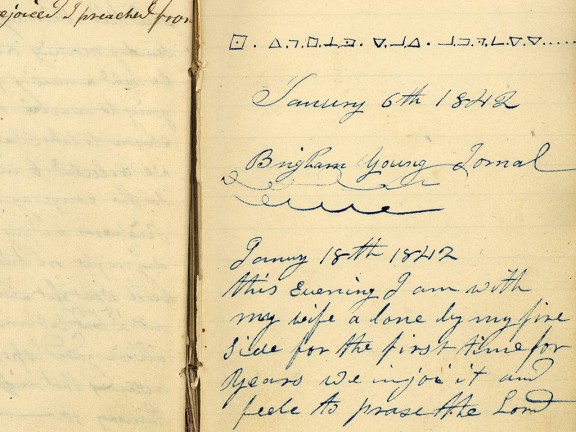 ejoiced I preached from
Janury 6th 1842
Brigham Young Jornal
Janury 18th 1842
this evening I am with
my wife a lone by my fire
side for the first time for
years we injoi it and
feele to prase the Lord